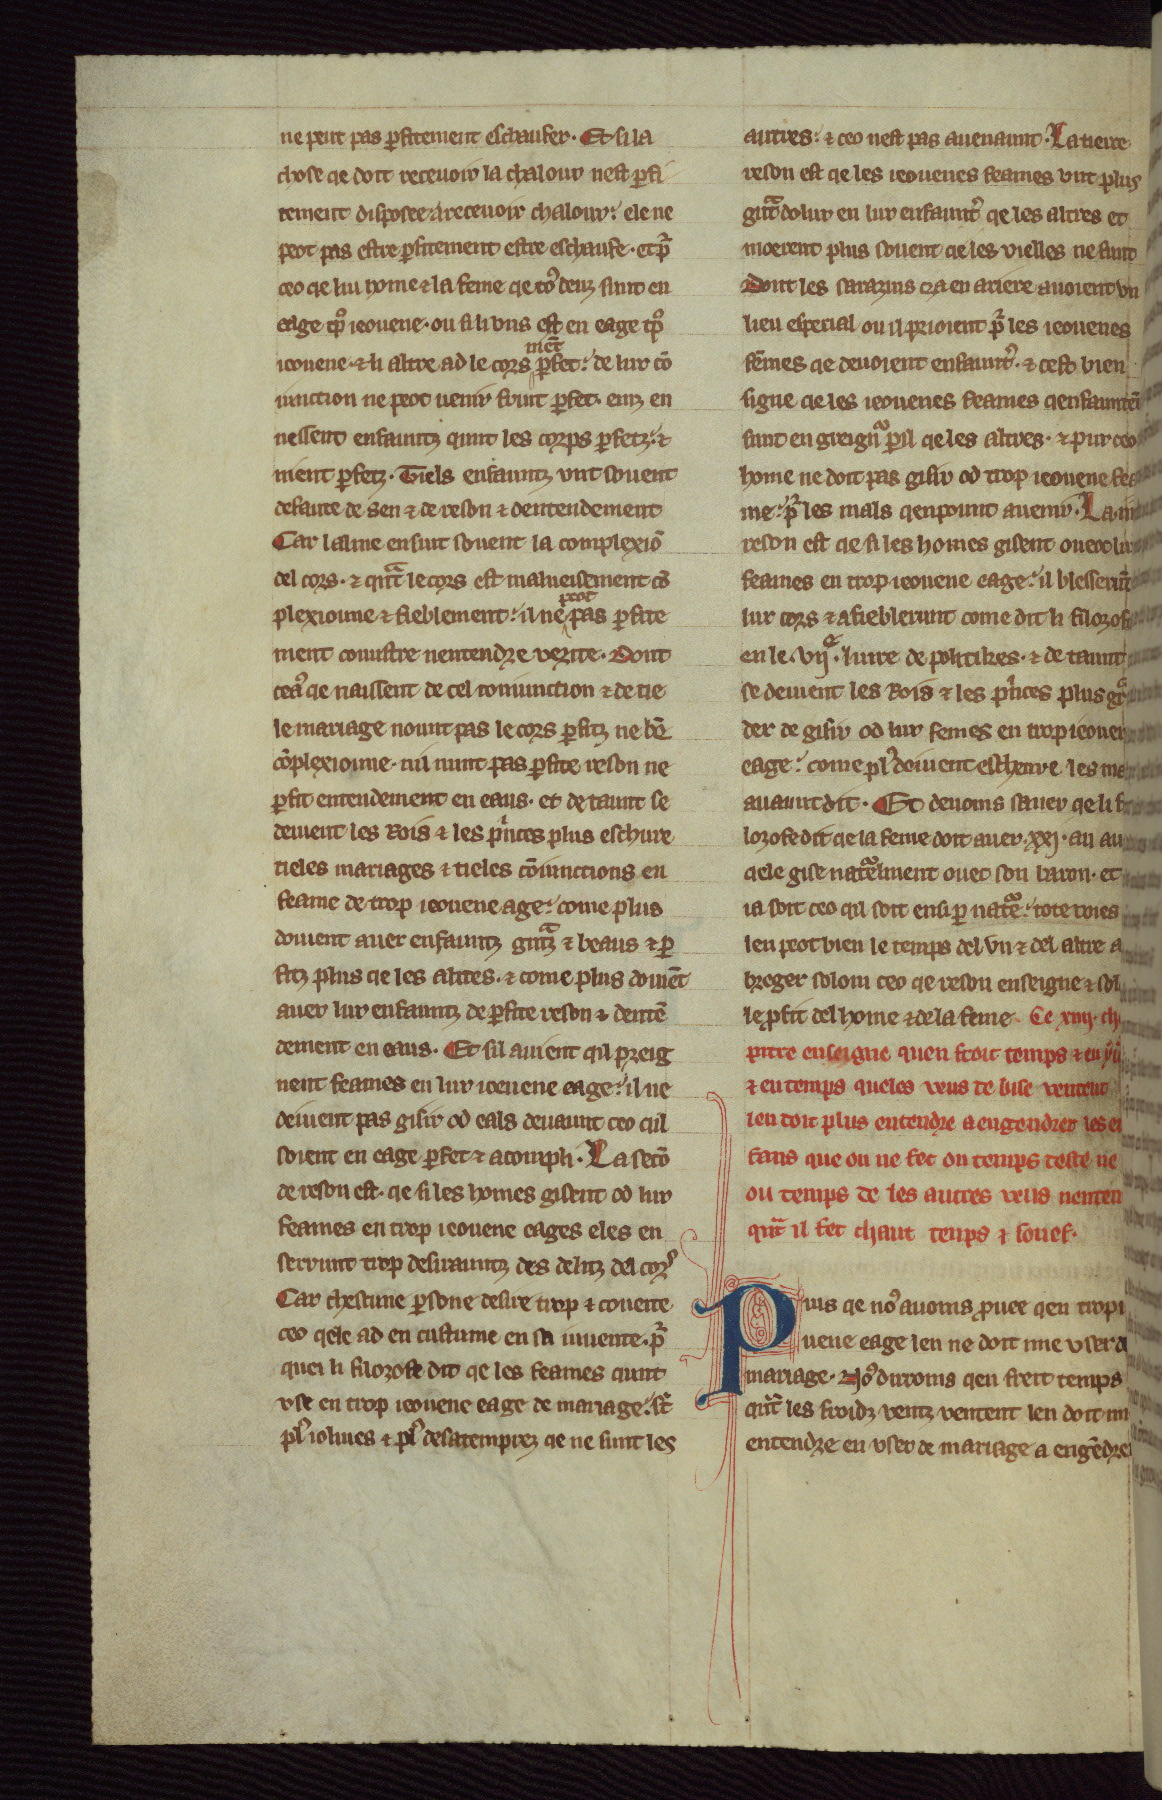 ne peut pas ꝑfitement eschaufer· Et si la
chose qe doit receuoir la chalour nest ꝑfi
tement disposee a receuoir chalour: ele ne
peot pas estre ꝑfitement estre eschaufe· et pͬ
ceo qe lui home ⁊ la feme qe toꝰ deuz sunt en
eage tͦp ieouene· ou si li vns est en eage tͦp
ieouene· ⁊ li altre ad le cors ꝑfet: de lur cō
met̄
iunction ne peot uenir fruit ꝑfet· enz en
nessent enfauntz qunt les corps ꝑfetz: ⁊
ment ꝑfetz· Tiels enfauntz vnt souent
defaute de sen ⁊ de reson ⁊ dentendement
Car lalme ensuit souent la complexiō
del cors· ⁊ qͣnt le cors est malueisement cō
plexioune ⁊ fieblement: il ne peot pas ꝑfite
ment conustre nentendre verite· Dont
ceaꝰ qe naissent de cel coniunction ⁊ de tie
le mariage nount pas le cors ꝑfitz ne bn̄
cōplexioune· nil nunt pas ꝑfite reson ne
ꝑfit entendement en eaus· et de taunt se
deiuent les Rois ⁊ les pͥnces plus eschiure
tieles mariages ⁊ tieles cōiunctions en
feame de trop ieouene age: come plus
doiuent auer enfauntz gͣntz ⁊ beaus ⁊ ꝑ
fitz plus qe les altres· ⁊ come plus doiuēt
auer lur enfauntz de ꝑfite reson ⁊ dentē
dement en eaus· Et sil auient qil preig
nent feames en lur ieouene eage: il ne
deiuent pas gisir od eals deuaunt ceo qil
soient en eage ꝑfet ⁊ acompli· La secō
de reson est· qe si les homes gisent od lur
feames en trop ieouene eages eles en
serrunt trop desirauntz des delitz del corꝰ
Car chescune ꝑsone desire trop ⁊ coueite
ceo qele ad en custume en sa iuuente· pͬ
quei li filozofe dit qe les feames qunt
vse en trop ieouene eage de mariage: sūt
plꝰ ioliues ⁊ plꝰ desatemprez qe ne sunt les
autres: ⁊ ceo nest pas auenaunt· La tierce
reson est qe les ieouenes feames vnt plus
gͣnt dolur en lur enfauntꝰ qe les altres et
moerent plus souent qe les vielles ne funt
Dont les sarazins cza en ariere auoient vn
lieu especial ou il prioient pͬ les ieouenes
fēmes qe deuoient enfauntꝰ· ⁊ cest bien
signe qe les ieouenes feames qenfauntēt
sunt en greignͦ ꝑil qe les altres· ⁊ pur ceo
home ne doit pas gisir od trop ieouene fea
me: pͬ les mals qenpount auenir· La
reson est qe si les homes gisent ouesqe lur
feames en trop ieouene eage: il blesserūt
lur cors ⁊ afieblerunt come dit li filozofe
en le· vijͤ· liure de politikes· ⁊ de taunt
se deiuent les Rois ⁊ les pͥnces plus gͣ
der de gisir od lur femes en trop ieouene
eage: come plꝰ doiuent escheure les ma
auaunt dit· Et deuoms sauer qe li fi
lozofe dit qe la feme doit auer· xxj· an au
qele gise natͣelment ouet son baron· et
ia soit ceo qil soit ensi ꝑ natͣe: tote voies
len peot bien le temps del vn ⁊ del altre a
breger solom ceo qe reson enseigne ⁊ sol
le ꝓfit del home ⁊ de la feme· Ce xiiij· cha
pitre enseigne quen froit temps ⁊ en
⁊ en temps queles veus de bise ventent
len doit plus entendre a engendrer les en
fans que ou ne fet ou temps deste ne
ou temps de les autres veus nenten
qͣnt il fet chaut temps ⁊ souef·
Puis qe noꝰ auoms ꝓuee qen trop i
ueue eage len ne doit mie vser de
mariage· Noꝰ dirroms qen freit temps
qͣnt les froidz ventz ventent len doit mi
entendre en vser de mariage a engēdre